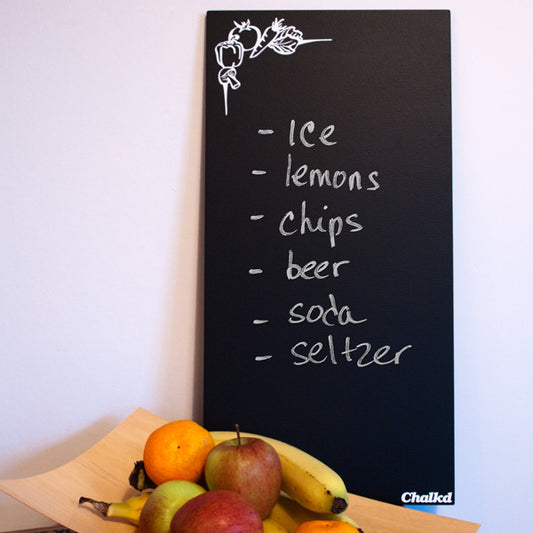 - Ice
- lemons
- chips
- beer
- soda
- seltzer
Chalkd